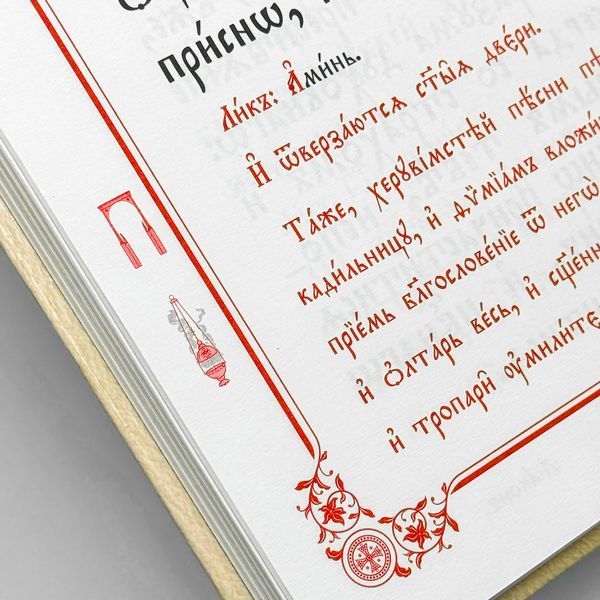 при́снѡ,
Ли́къ: А҆ми́нь.
И҆ ѿверза́ютсѧ ст҃ы́ѧ две́ри.
Та́же, херꙋві́мстѣй пѣ́сни
кади́льницꙋ, и҆ ѳѷмїа́мъ вложи́
прїе́мь бл҃гослове́нїе ѿ негѡ̀
и҆ ѻ҆лта́рь ве́сь, и҆ сщ҃е́нн
и҆ тропари̑ ᲂу҆мили́те